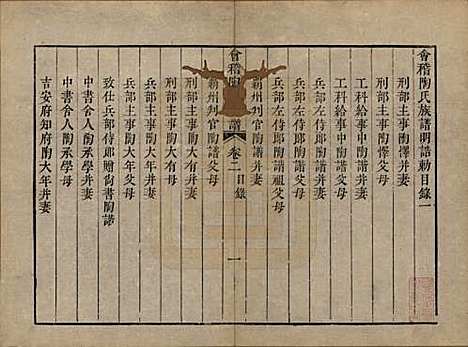 會稽陶氏族譜明誥勅目錄一
刑部主事陶懌并妻
刑部主事陶懌父母
工科給事中陶諧并妻
工科給事中陶諧父母
兵部左侍郎陶諧并妻
兵部左侍郎陶諧祖父母
霸州判官陶諧并妻
會稽陶
譜
卷二
目錄
一
霸州判官陶諧父母
刑部主事陶大有并妻
刑部主事陶大有父母
兵部主事陶大年并妻
兵部主事陶大年父母
致仕兵部侍郎贈尚書陶諧
中書舍人陶承學并妻
中書舍人陶承學父母
吉安府知府陶大年并妻